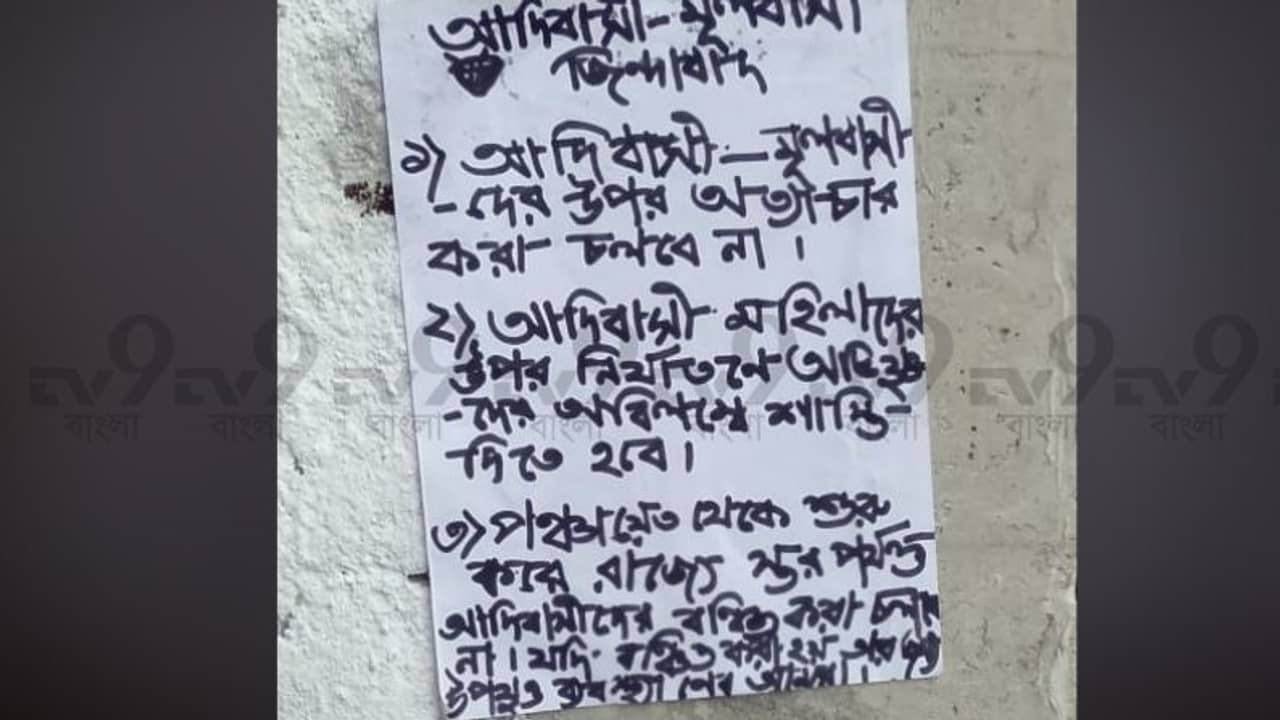 আদিবাসী-মূলবাসী
জিন্দাবাদ
১) আদিবাসী-মূলবাসী
-দের উপর অত্যাচার
করা চলবে না।
২) আদিবাসী মহিলাদের
উপর নির্যাতনে অভিযুক্ত
-দের অবিলম্বে শাস্তি
দিতে হবে।
৩) পঞ্চায়েত থেকে শুরু
করে রাজ্যে স্তর পর্যন্ত
আদিবাসীদের বঞ্চিত করা চলবে
না। যদি বঞ্চিত করা হয় তার জন্য
উপযুক্ত ব্যবস্থা নেব আমরা।
TV9 বাংলা TV9 বাংলা TV9 বাংলা TV9 বাংলা TV9 বাংলা TV9 বাংলা TV9 বাংলা TV9 বাংলা